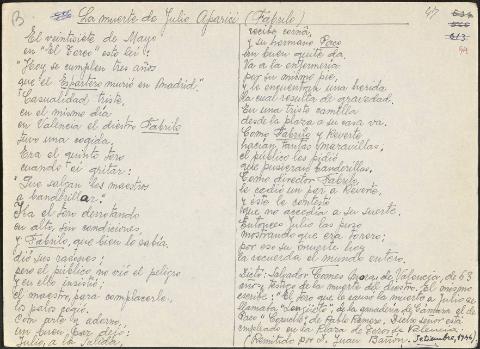 La muerte de Julio Aparici (Fabrilo)
47
613
El veintisiete de Mayo
en "El Toreo" este leí:
"Hoy se cumplen tres años
que el Espartero murió en Madrid."
Casualidad triste,
en el mismo día
en Valencia el diestro Fabrilo
tuvo una cogida.
Era el quinto toro
cuando oí gritar:
"Que salgan los maestros
a banderillar."
Iba el toro derrotando
en alto, sin condiciones
y Fabrilo, que bien lo sabía,
dió sus razones;
pero el público no vió el peligro
y en ello insistió;
el maestro, para complacerle,
los palos cogió.
Con arte y adorno,
un buen toro dejó;
Julio, a la salida,
recibe cornā,
y su hermano Paco
un buen quite da.
Va a la enfermería
por su mismo pie,
y le encuentran una herida
la cual resulta de gravedad.
En una triste camilla
desde la plaza a su casa va.
Como Fabrilo y Reverte
hacían tantas maravillas,
el público les pidió
que pusieran banderillas.
Como director Fabrilo
le cedió un par a Reverte,
y este le contestó
que no accedía a su suerte.
Entonces Julio las puso
mostrando que era torero;
por eso su muerte hoy
la recuerda el mundo entero.
Dictó: Salvador Comes de Valencia, de 63
años y testigo de la muerte del diestro. El mismo
escribe: "El toro que le causó la muerte a Julio se
llamaba "Lengüeto", de la ganadería de Cámara, el de
Paco "Corucho", de Pablo Romero. Dicho señor está
empleado en la Plaza de Toros de Valencia.
(Remitido por D. Juan Bañon. Setiembre, 1946)